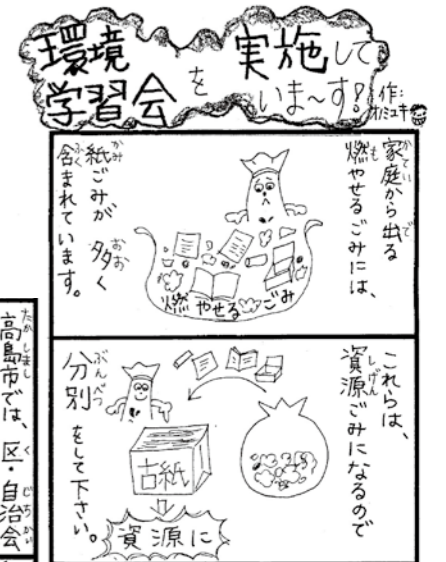 環境学習会を実施していま〜す!
作:オノミユキ
家庭から出る
燃やせるごみには、
紙ごみが多く
含まれています。
燃やせるごみ
これらは、
資源ごみになるので
分別をして下さい。
古紙
資源に
高島市では、区・自治会